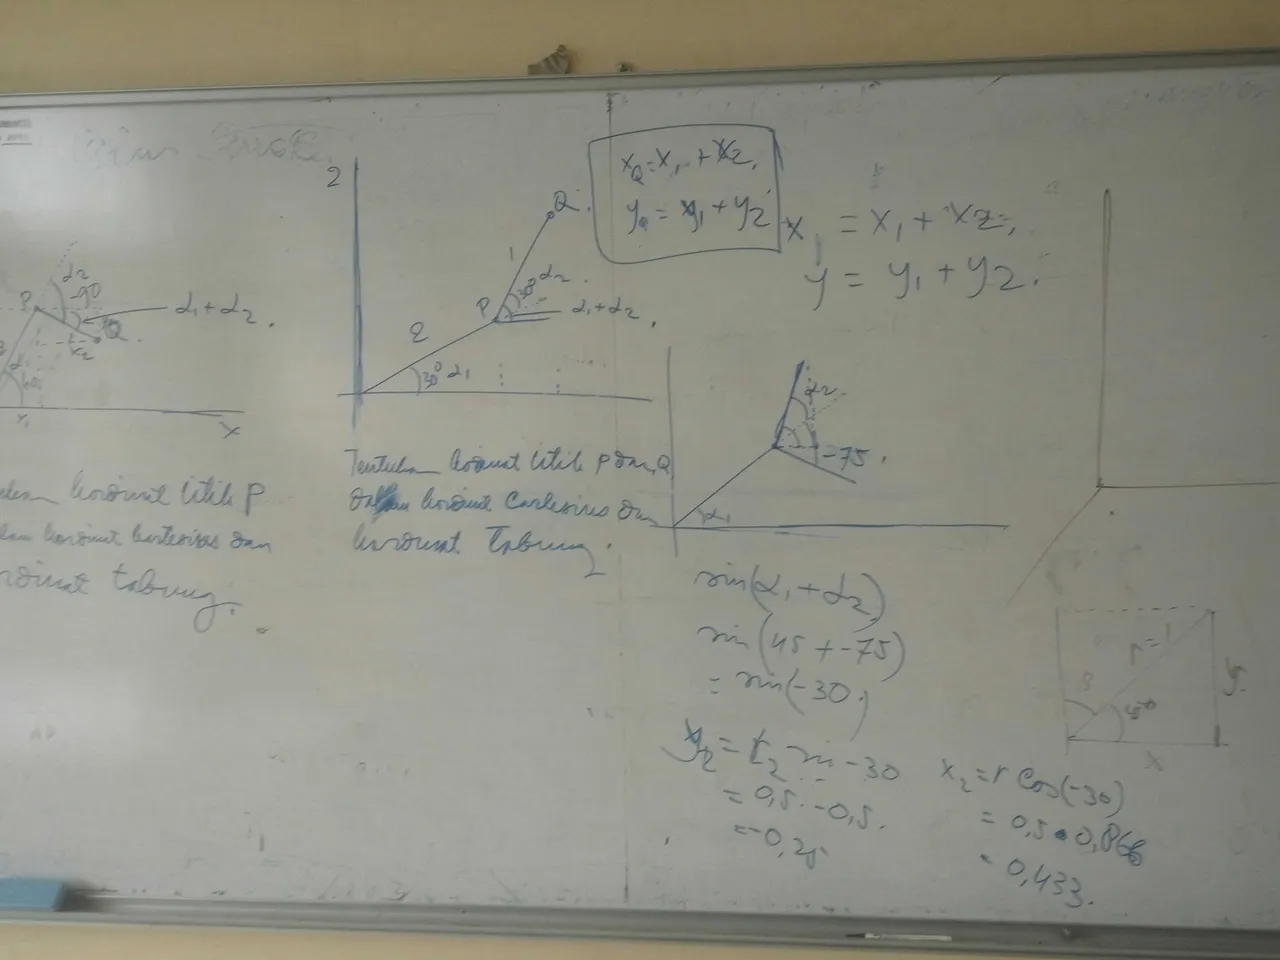 α2
-90
P
α1 + α2.
Q.
x2
60
x1
x
koordinat titik P
koordinat kartesius dan
tabung.
2
Q.
1
30° α2
P
α1 + α2.
2
30° α1
Tentukan koordinat titik P dan Q
Dalam koordinat Cartesius dan
koordinat Tabung.
xQ = x1 + x2,
yQ = y1 + y2
x = x1 + x2,
y = y1 + y2.
α2
-75.
α1
sin(α1 + α2)
sin(45 + -75)
= sin(-30)
y2 = r2 sin -30
= 0,5 . -0,5.
= -0,25
x2 = r cos(-30)
= 0,5 • 0,866
= 0,433.
r=1
y.
45°
x